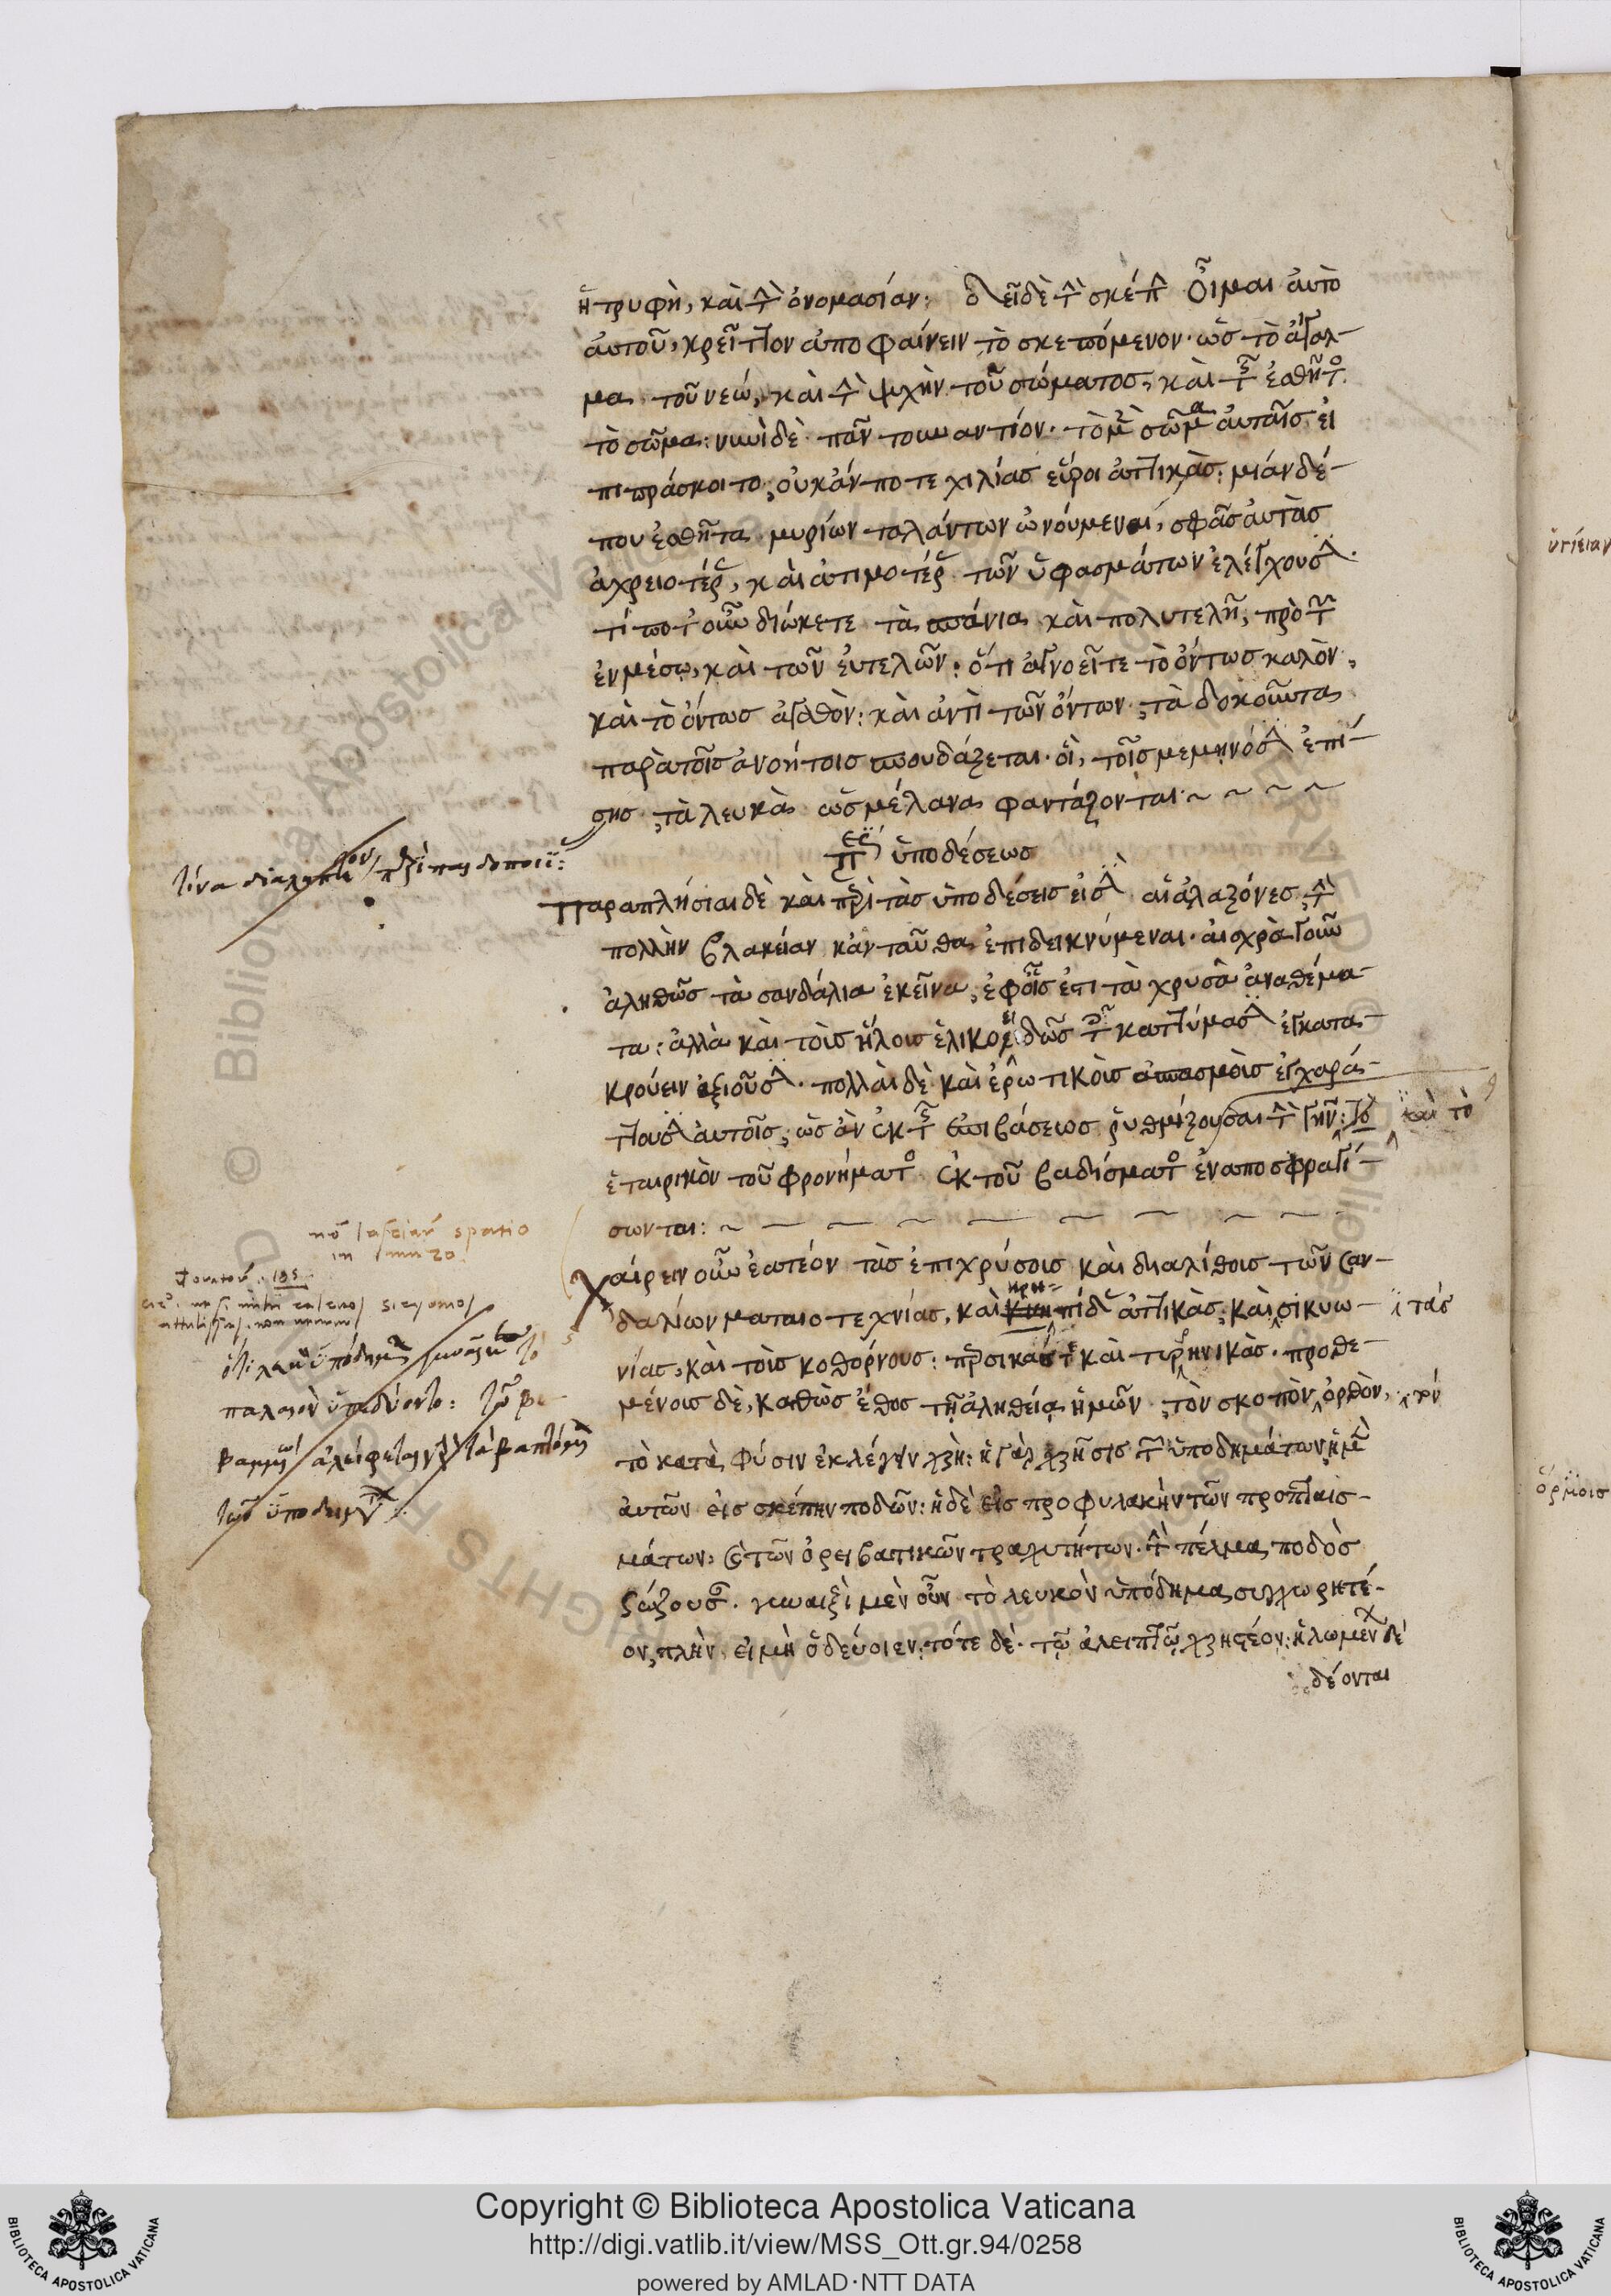 ἡ τρυφὴ, καὶ τὴν ὀνομασίαν: δεῖ δὲ τὴν σκέπην Οἶμαι αὐτὸ
αὑτοῦ, κρεῖττον ἀποφαίνειν τὸ σκεπόμενον· ὡς τὸ ἄγαλ-
μα τοῦ νεώ, καὶ τὴν ψυχὴν τοῦ σώματος, καὶ τῆς ἐσθῆτος
τὸ σῶμα: νυνὶ δὲ πᾶν τοὐναντίον· τὸ μὲν σῶμα αὐταῖς εἰ
πιπράσκοιτο, οὐκ ἄν ποτε χιλίας εὕροι ἀττικὰς: μίαν δέ-
που ἐσθῆτα μυρίων ταλάντων ὠνούμεναι, σφᾶς αὐτὰς
ἀχρειοτέρας, καὶ ἀτιμοτέρας τῶν ὑφασμάτων ἐλέγχουσιν·
τί ποτ' οὖν διώκετε τὰ σπάνια καὶ πολυτελῆ, πρὸ τῶν
ἐν μέσῳ, καὶ τῶν εὐτελῶν: ὅτι ἀγνοεῖτε τὸ ὄντως καλὸν,
καὶ τὸ ὄντως ἀγαθὸν: καὶ ἀντὶ τῶν ὄντων, τὰ δοκοῦντα
παρὰ τοῖς ἀνοήτοις σπουδάζεται· οἳ, τοῖς μεμηνόσιν ἐπί-
σης, τὰ λευκὰ ὡς μέλανα φαντάζονται ~ ~ ~ ~
περὶ ὑποδέσεως
Παραπλήσιαι δὲ καὶ περὶ τὰς ὑποδέσεις εἰσὶν αἱ ἀλαζόνες, τὴν
πολλὴν βλακείαν κἀνταῦθα ἐπιδεικνύμεναι· αἰσχρὰ γοῦν
ἀληθῶς τὰ σανδάλια ἐκεῖνα, ἐφ' οἷς ἐστι τὰ χρυσᾶ ἀναθέμα-
τα: ἀλλὰ καὶ τοῖς ἥλοις ἑλικοειδῶς τοῖς καττύμασιν ἐγκατα-
κρούειν ἀξιοῦσιν· πολλαὶ δὲ καὶ ἐρωτικοὺς ἀσπασμοὺς ἐγχαράτ-
τουσιν αὐτοῖς, ὡς ἂν ἐκ τῆς ἐπιβάσεως ῥυθμίζουσαι τὴν γῆν: τὸ
καὶ τὸ
ἑταιρικὸν τοῦ φρονήματος ἐκ τοῦ βαδίσματος ἐναποσφραγί-
σωνται: ~ ~ ~ ~ ~
Χαίρειν οὖν ἐατέον τὰς ἐπιχρύσους καὶ διαλίθους τῶν σαν-
δαλίων ματαιοτεχνίας, καὶ κρηπίδας ἀττικὰς, καὶ σικυω-
τὰς
νίας, καὶ τοὺς κοθόρνους: περσικάς τε καὶ τυρρηνικὰς· προθε-
μένοις δὲ, καθὼς ἔθος τῇ ἀληθείᾳ ἡμῶν, τὸν σκοπὸν ὀρθὸν,
τὸ κατὰ φύσιν ἐκλέγειν χρὴ: ἡ γὰρ χρῆσις τῶν ὑποδημάτων, ἡ μὲν
αὐτῶν εἰς σκέπην ποδῶν: ἡ δὲ εἰς προφυλακὴν τῶν προσπταισ-
μάτων, καὶ τῶν ὀρειβατικῶν τραχυτήτων· τὸ πέλμα ποδὸς
σώζουσα. γυναιξὶ μὲν οὖν τὸ λευκὸν ὑπόδημα συγχωρητέ-
ον, πλὴν εἰ μὴ ὁδεύοιεν: τότε δὲ τῷ ἀλειπτῷ χρηστέον: ἥλων μὲν δὲ
δέονται
non lasciar spatio
in mezo
ὑγίειαν
ὅρμοις
Copyright © Biblioteca Apostolica Vaticana
http://digi.vatlib.it/view/MSS_Ott.gr.94/0258
powered by AMLAD·NTT DATA
BIBLIOTECA APOSTOLICA VATICANA
BIBLIOTECA APOSTOLICA VATICANA